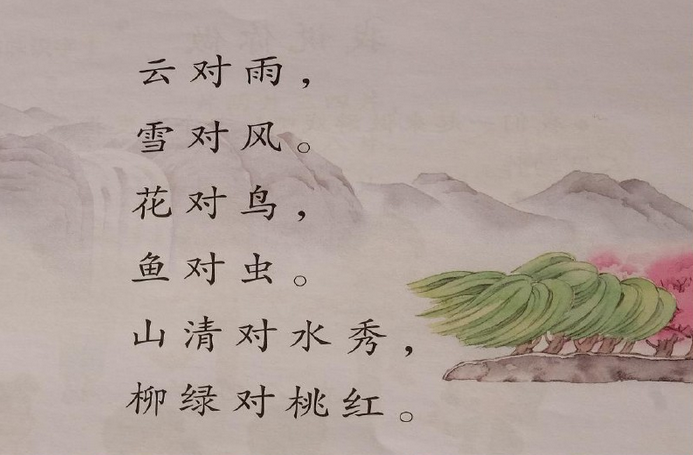 云对雨，
雪对风。
花对鸟，
鱼对虫。
山清对水秀，
柳绿对桃红。